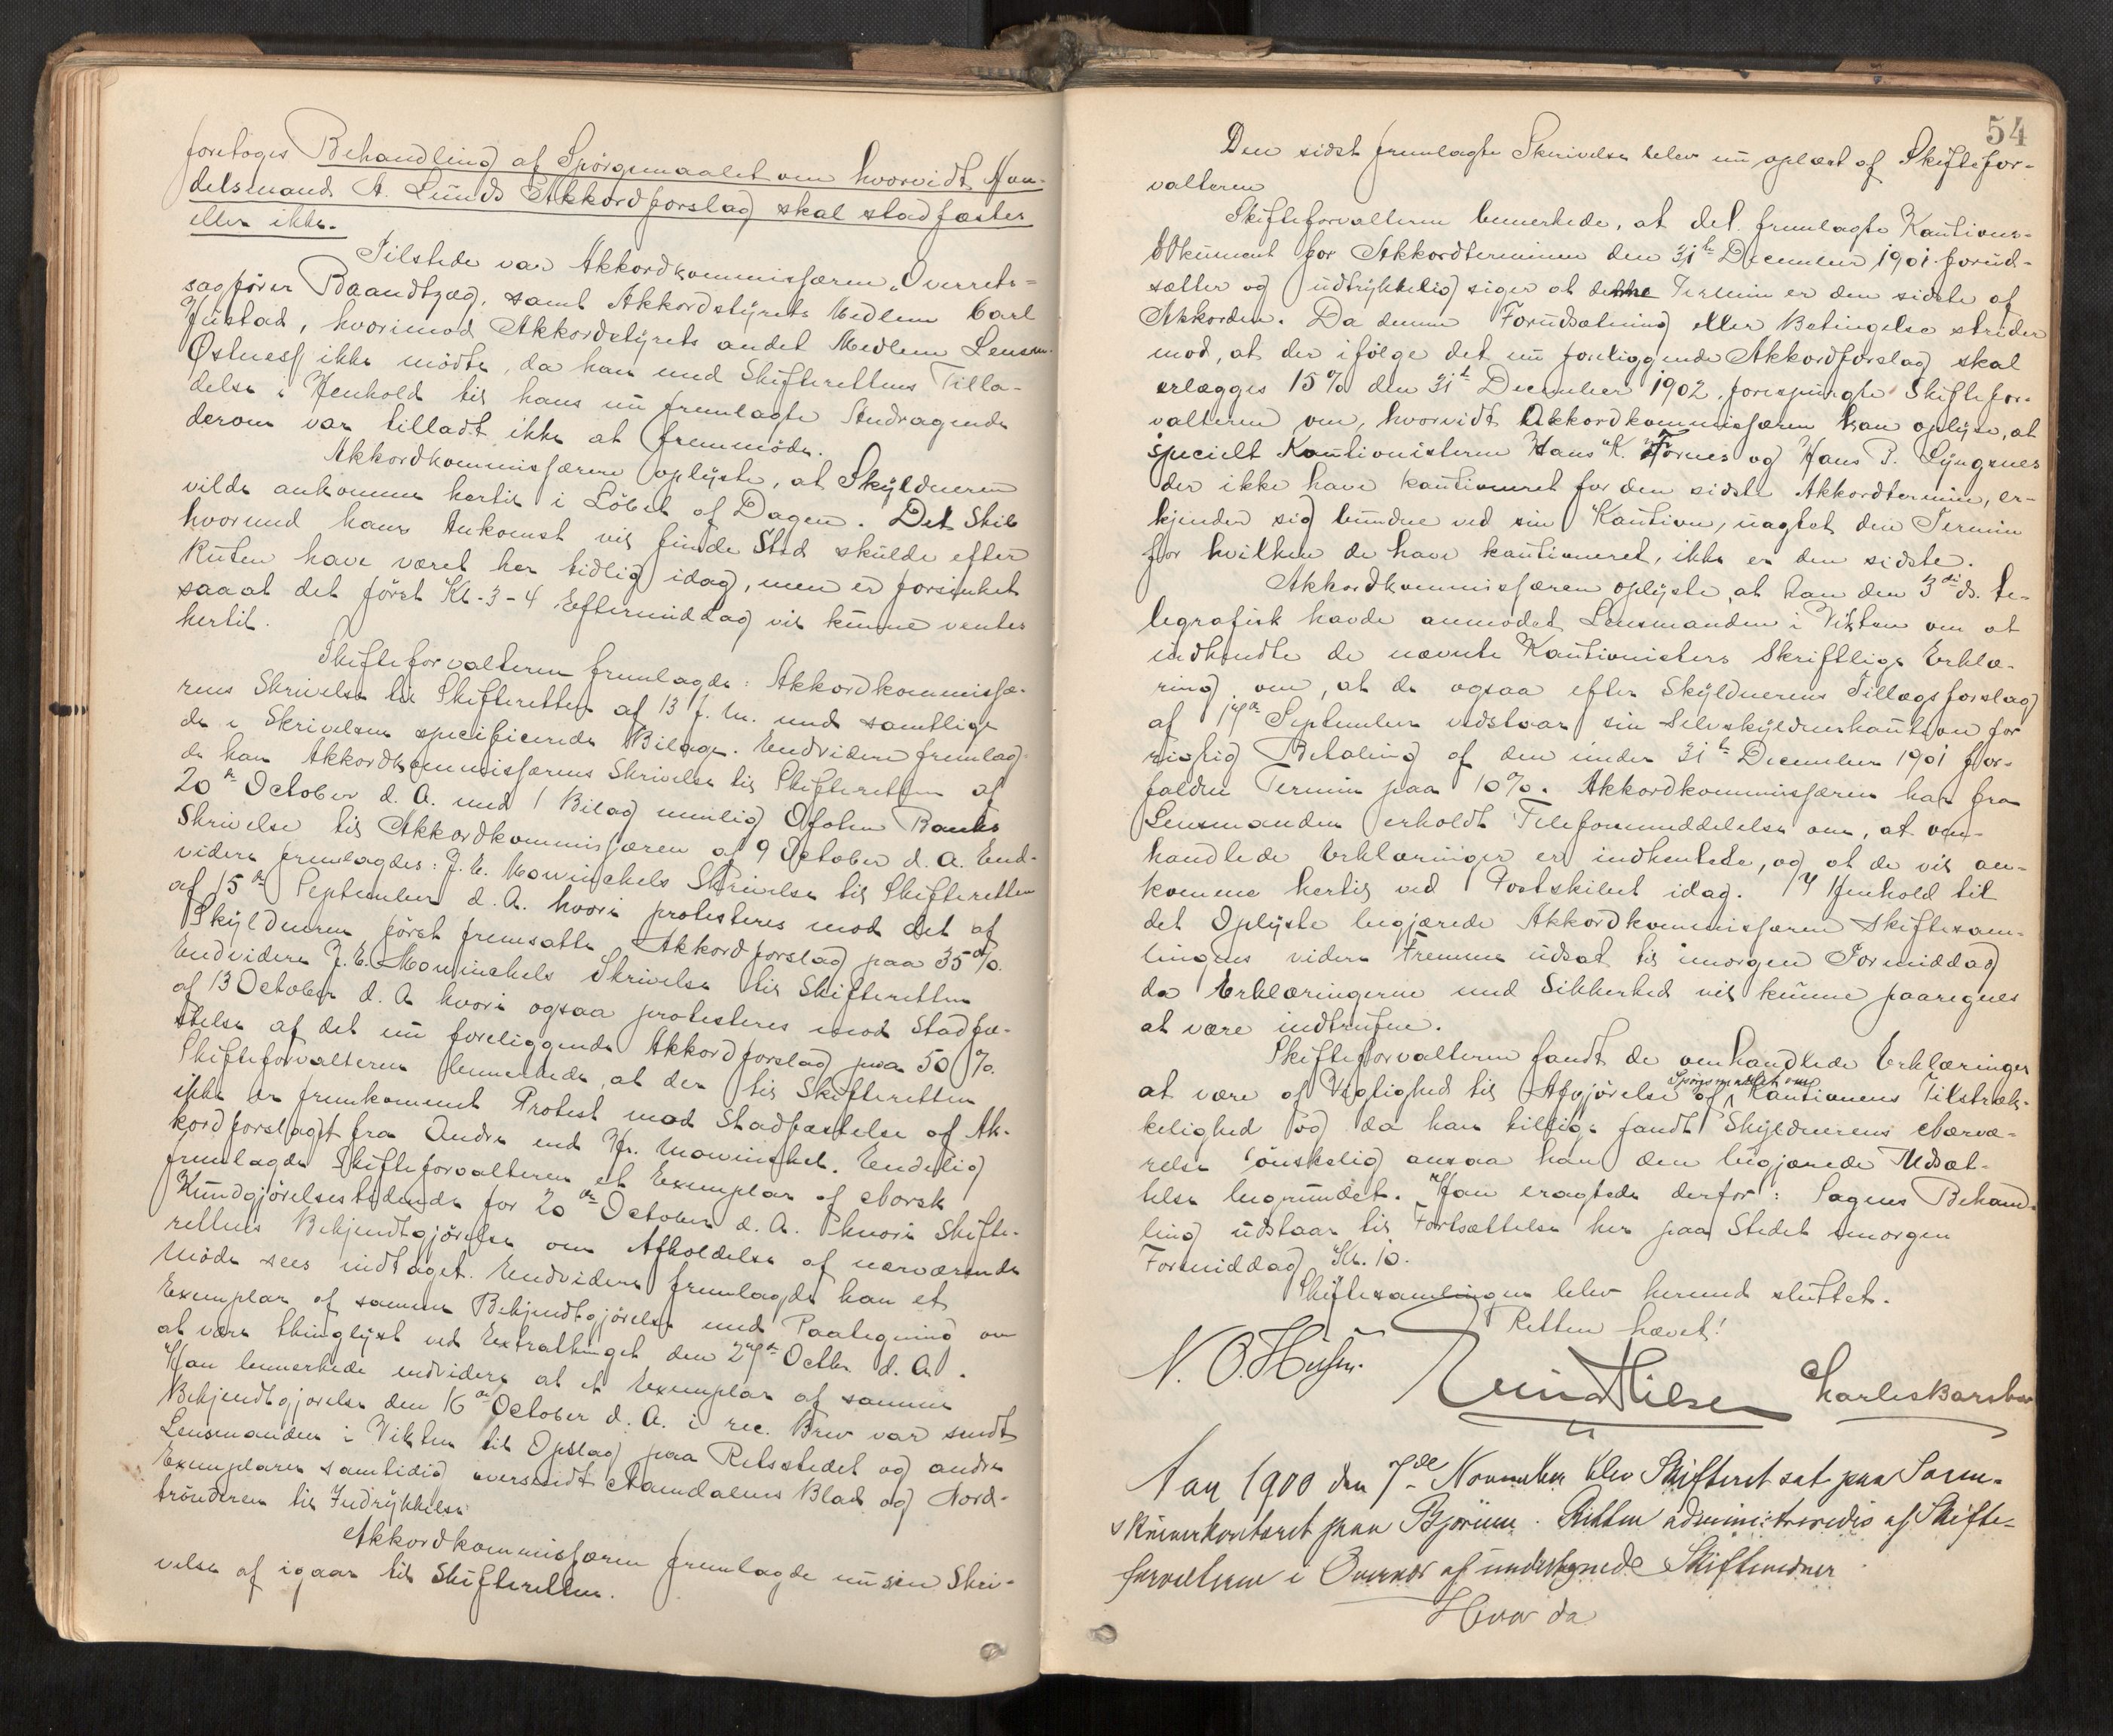 foretoges Behandling af Spörgsmaalet om hvorvidt Han-
delsmand A. Lunds Akkordforslag skal stadfæstes
eller ikke.
Tilstede var Akkordkommissæren, Overrets-
sagförer Baandtzæg, samt Akkordstyrets Medlem Carl
Gustad, hvorimod Akkordstyrets andet Medlem Lensm.
Östnes ikke mödte, da han med Skifterettens Tilla-
delse i Henhold til hans nu fremlagte Andragende
derom var tilladt ikke at fremmöde.
Akkordkommissæren oplyste, at Skyldneren
vilde ankomme hertil i Löbet af Dagen. Det Skib
hvormed hans Ankomst vil finde Sted skulde efter
Ruten have været her tidlig idag, men er forsinket
saa at det först Kl. 3-4 Eftermiddag vil kunne ventes
hertil.
Skifteforvalteren fremlagde: Akkordkommissæ-
rens Skrivelse til Skifteretten af 13 f. M. med samtlige
de i Skrivelsen specificerede Bilage. Endvidere fremlag-
de han Akkordkommissærens Skrivelse til Skifteretten af
20de October d. A. med 1 Bilag nemlig Ofoten Banks
Skrivelse til Akkordkommissæren af 9 October d. A. End-
videre fremlagdes: J. E. Mowinckels Skrivelse til Skifteretten
af 15de September d. A. hvori protesteres mod det af
Skyldneren först fremsatte Akkordforslag paa 35%.
Endvidere J. E. Mowinckels Skrivelse til Skifteretten
af 13 October d. A. hvori ogsaa protesteres mod Stadfæ-
stelse af det nu foreliggende Akkordforslag paa 50%.
Skifteforvalteren bemerkede, at der til Skifteretten
ikke er fremkommet Protest mod Stadfæstelse af Ak-
kordforslaget fra Andre end Hr. Mowinckel. Endelig
fremlagde Skifteforvalteren et Exemplar af Norsk
Kundgjörelsestidende for 20de October d. A. hvori Skifte-
rettens Bekjendtgjörelse om Afholdelse af nærværende
Möde sees indtaget. Endvidere fremlagde han et
Exemplar af samme Bekjendtgjörelse med Paategning om
at være thinglyst ved Extrathinget den 27de Octbr d. A.
Han bemerkede endvidere at et Exemplar af samme
Bekjendtgjörelse den 16de October d. A. i rec. Brev var sendt
Lensmanden i Vikten til Opslag paa Retsstedet og andre
Exemplarer samtidig oversendt Namdalens Blad og Nord-
trönderen til Indrykkelse.
Akkordkommissæren fremlagde nu sin Skri-
velse af igaar til Skifteretten.
54
Den sidst fremlagte Skrivelse blev nu oplæst af Skiftefor-
valteren
Skifteforvalteren bemerkede, at det fremlagte Kautions-
dokument for Akkordterminen den 31te December 1901 forud-
sætter og udtrykkelig siger at denne Termin er den sidste af
Akkorden. Da denne Forudsætning eller Betingelse strider
mod, at der ifölge det nu foreliggende Akkordforslag skal
erlægges 15% den 31te December 1902, forespurgte Skiftefor-
valteren om, hvorvidt Akkordkommissæren kan oplyse, at
specielt Kautionisterne Hans K. Fornes og Hans P. Lyngsnes
der ikke have kautioneret for den sidste Akkordtermin, er-
kjender sig bundne ved sin Kaution, uagtet den Termin
for hvilken de have kautioneret, ikke er den sidste.
Akkordkommissæren oplyste, at han den 3die ds. te-
legrafisk havde anmodet Lensmanden i Vikten om at
indhendte de nævnte Kautionisters Skriftlige Erklæ-
ring om, at de ogsaa efter Skyldnerens Tillægsforslag
af 17de September vedstaar sin Selvskyldnerkaution for
rigtig Betaling af den under 31te December 1901 for-
faldne Termin paa 10%. Akkordkommissæren har fra
Lensmanden erholdt Telefonmeddelelse om, at om-
handlede Erklæringer er indhentede, og at de vil an-
komme hertil ved Postskibet idag. I Henhold til
det Oplyste begjærede Akkordkommissæren Skiftesam-
lingens videre Fremme udsat til imorgen Formiddag
da Erklæringerne med Sikkerhed vil kunne paaregnes
at være indtrufne.
Skifteforvalteren fandt de omhandlede Erklæringer
at være af Vigtighed til Afgjörelse af Spörgsmaalet om Kautionens Tilstræk-
kelighed og da han tillige fandt Skyldnerens Nærvæ-
relse önskelig ansaa han den begjærede Udsæt-
telse begrundet. Han eragtede derfor: Sagens Behand-
ling udstaar til Fortsættelse her paa Stedet imorgen
Formiddag Kl. 10.
Skiftesamlingen blev hermed sluttet.
Retten hævet!
Charles Barstow
Aar 1900 den 7de November blev Skifteret sat paa Soren-
skriverkontoret paa Björum. Retten administreredes af Skifte-
forvalteren i Overvær af undertegnede Skiftevidner
Hvor da